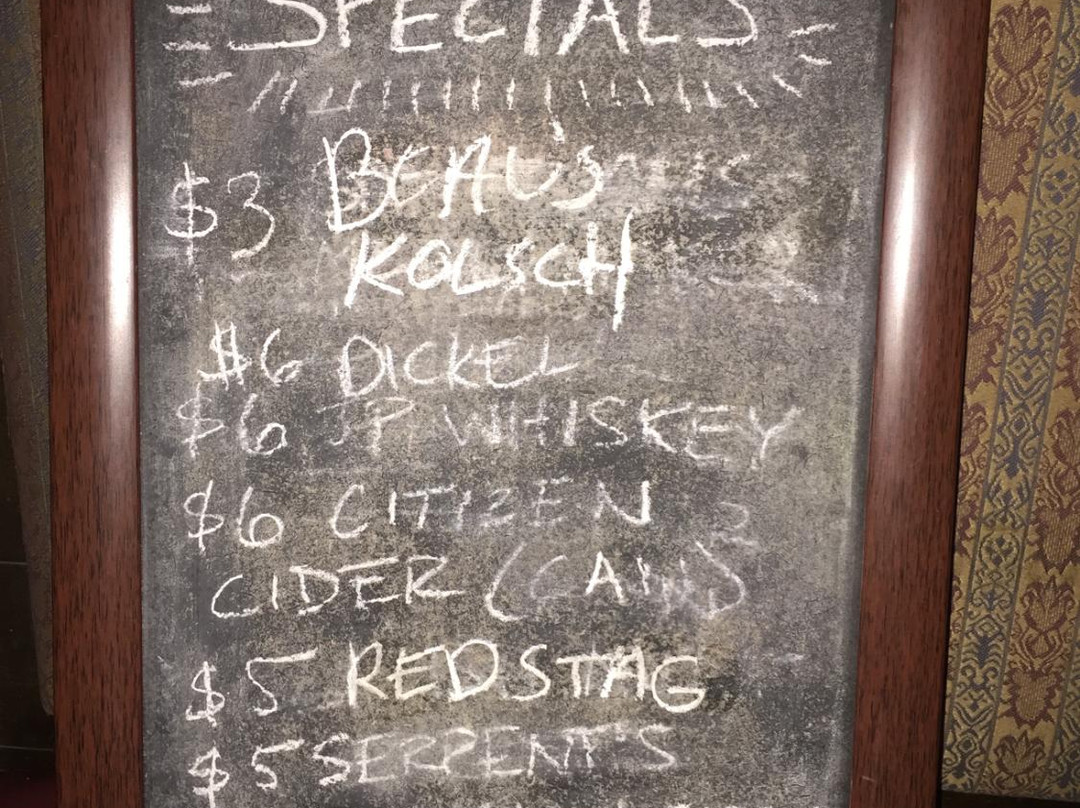 SPECIALS
$3 BEAU'S
KOLSCH
$6 DICKEL
$6 JP WHISKEY
$6 CITIZEN
CIDER (CAN)
$5 RED STAG
$5 SERPENT'S